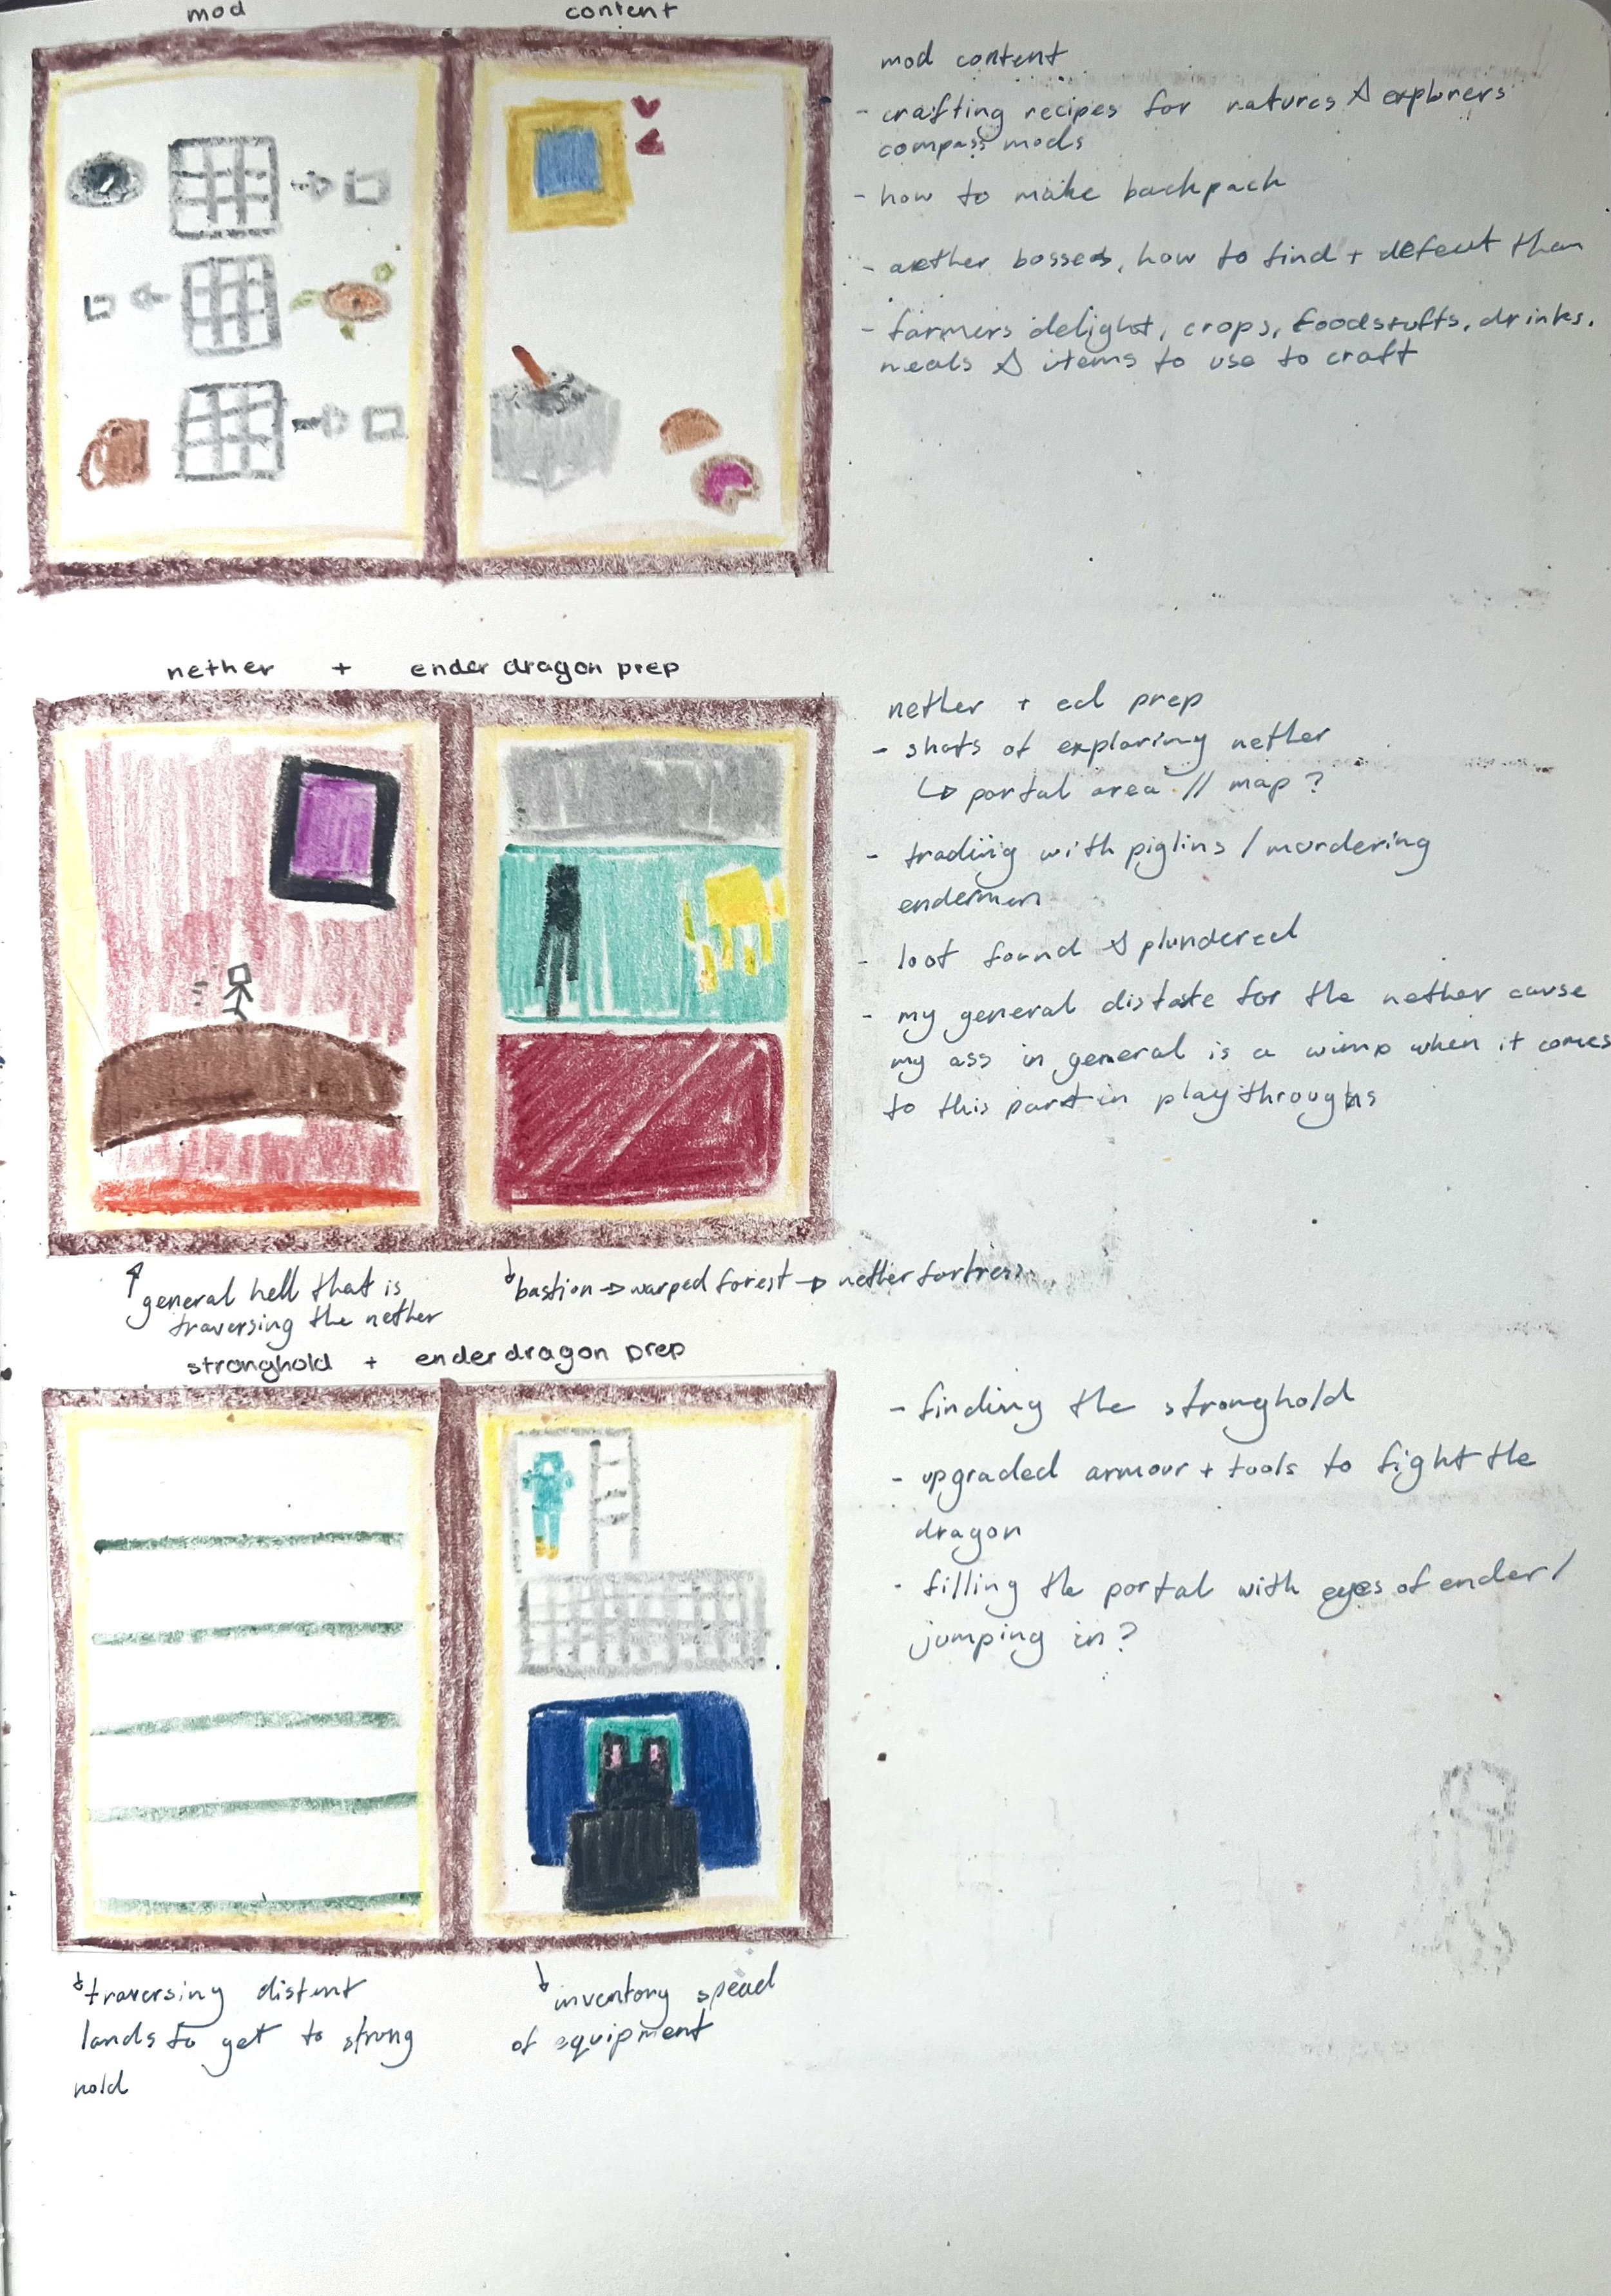 mod content
mod content
- crafting recipes for natures & explorers
compass mods
- how to make backpack
- aether bosses, how to find + defeat them
- farmers delight, crops, foodstuffs, drinks,
meals & items to use to craft
nether + ender dragon prep
nether + ed prep
- shots of exploring nether
↳ portal area // map?
- trading with piglins / murdering
endermen
- loot found & plundered
- my general distaste for the nether cause
my ass in general is a wimp when it comes
to this part in playthroughs
↑ general hell that is
traversing the nether
↓ bastion → warped forest → nether fortress
stronghold + ender dragon prep
- finding the stronghold
- upgraded armour + tools to fight the
dragon
- filling the portal with eyes of ender/
jumping in?
↓ traversing distent
lands to get to strong
hold
↓ inventory spead
of equipment